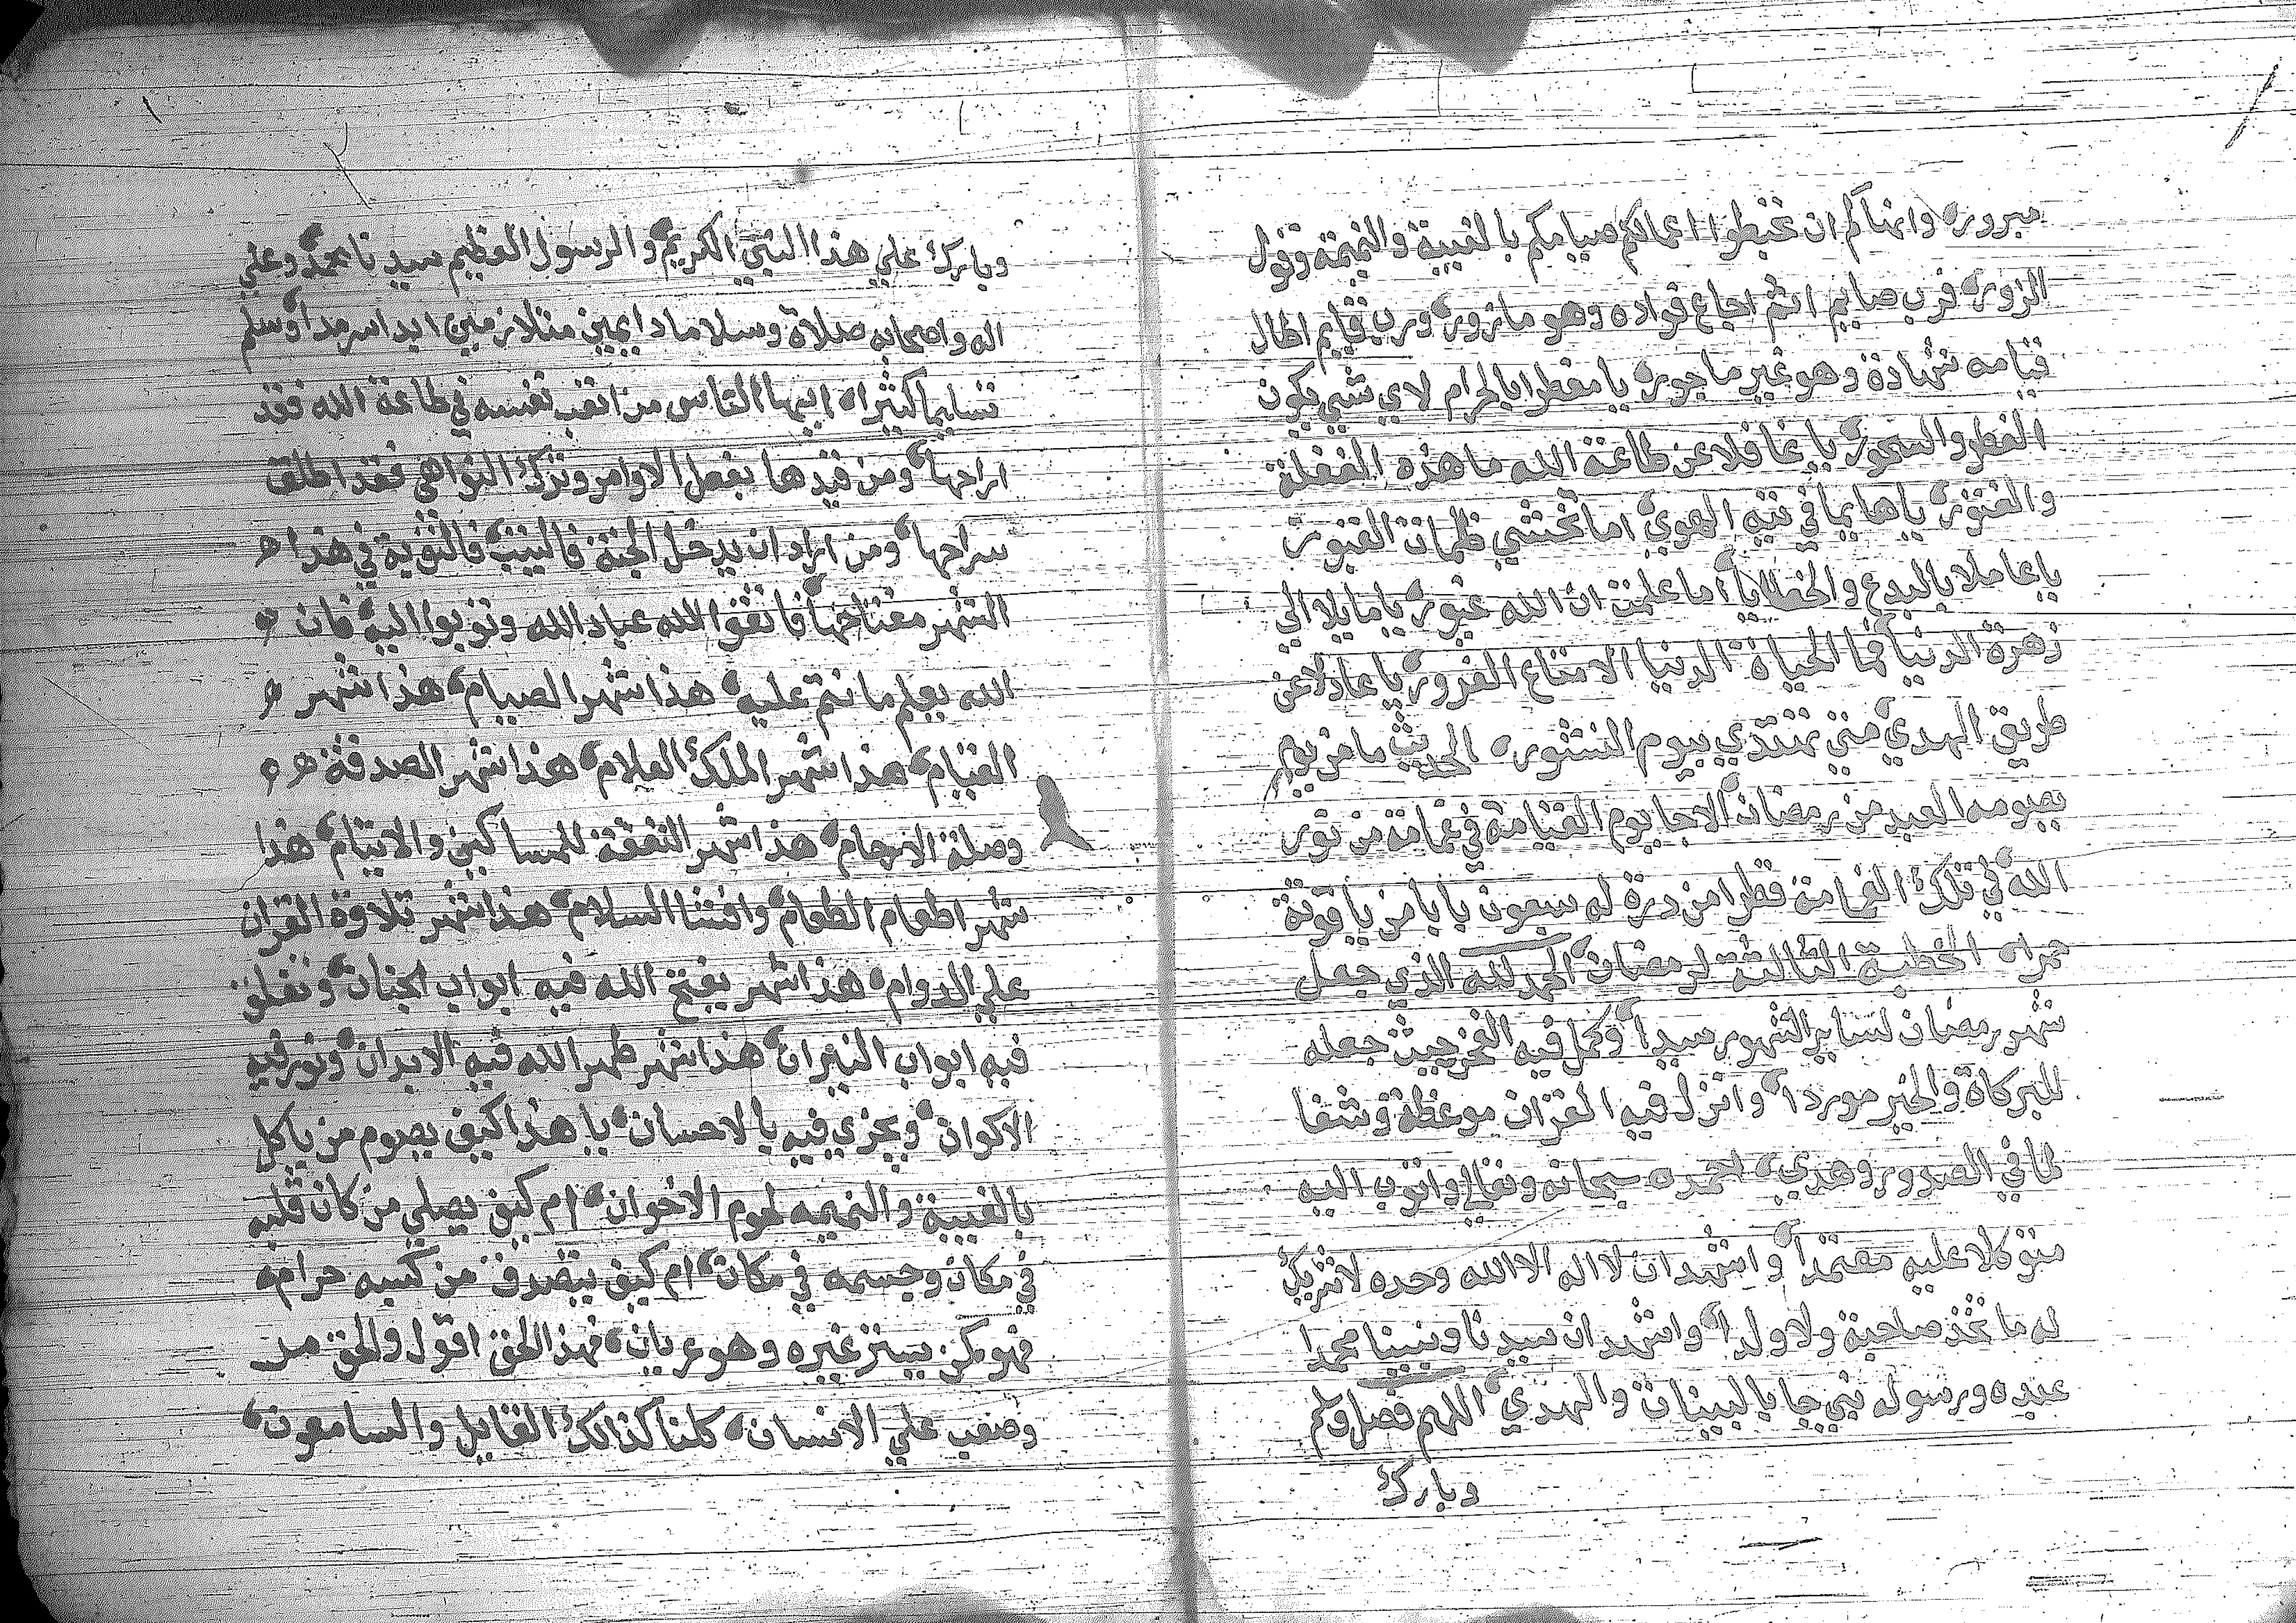 مبروره وانهاكم ان تحبطوا اعمالكم صيامكم بالغيبة والنميمة وقول
الزور، فرب صايم اجاع فواده وهو مازور، ورب قايم اطال
قيامه سهادة وهو غير ماجور، يا مفطرا بالحرام لاي شي يكون
الفطر والسحور، يا غافلا عن طاعة الله ما هذه الغفلة
والفتور، يا هايما في تيه الهوي، اما تخشي ظلمات القبور،
يا عاملا بالبدع والخطايا، اما علمت ان الله غيور، يا مايلا الي
زهرة الدنيا، فما الحياة الدنيا الا متاع الغرور، يا عادلا عن
طريق الهدي، متي تهتدي بيوم النشور، الحديث ما من يوم
يصومه العبد من رمضان الا جا يوم القيامة في غمامة من نور
الله في تلك الغمامة قطرا من درة له سبعون بابا من ياقوتة
حمراه الخطبة الثالثة لرمضان، الحمد لله الذي جعل
شهر رمضان لساير الشهور سيدا، وكمل فيه الفخر حيث جعله
للبركاة والخير موردا، وانزل فيه القران موعظة وشفا
لما في الصدور وهدي، احمده سبحانه وتعالي واتوب اليه
متوكلا عليه معتمدا، واشهد ان لا اله الا الله وحده لا شريك
له ما تخذ صاحبة ولا ولدا، واشهد ان سيدنا ونبينا محمدا
عبده ورسوله نبي جا بالبينات والهدي، اللهم فصل وسلم
وبارك
وبارك علي هذا النبي الكريم، والرسول العظيم سيدنا محمد، وعلي
اله واصحابه صلاة وسلاما دايمين متلازمين ابدا سرمدا، وسلم
تسليما كثيراه ايها الناس من اتعب نفسه في طاعة الله فقد
اراحها، ومن قيدها بفعل الاوامر وترك النواهي فقد اطلق
سراحها، ومن اراد ان يدخل الجنة فالتوبة في هذا
الشهر مفتاحها، فاتقوا الله عباد الله وتوبوا اليه، فان
الله يعلم ما نتم عليه، هذا شهر الصيام، هذا شهر
القيام، هذا شهر الملك العلام، هذا شهر الصدقة
وصلة الارحام، هذا شهر النفقة للمساكين والايتام، هذا
شهر اطعام الطعام، وافشا السلام، هذا شهر تلاوة القران
علي الدوام، هذا شهر يفتح الله فيه ابواب الجنان، وتغلق
فيه ابواب النيران، هذا شهر طهر الله فيه الابدان، ونور فيه
الاكوان، ويجزي فيه بالاحسان، يا هذا كيف يصوم من ياكل
بالغيبة والنميمه لحوم الاخوان، ام كيف يصلي من كان قلبه
في مكان وجسمه في مكان، ام كيف يتصدق من كسبه حرام،
فهو كمن يستر غيره وهو عريان، فهذا الحق اقول والحق مر
وصعب علي الانسان، كلنا كذالك القايل والسامعون،